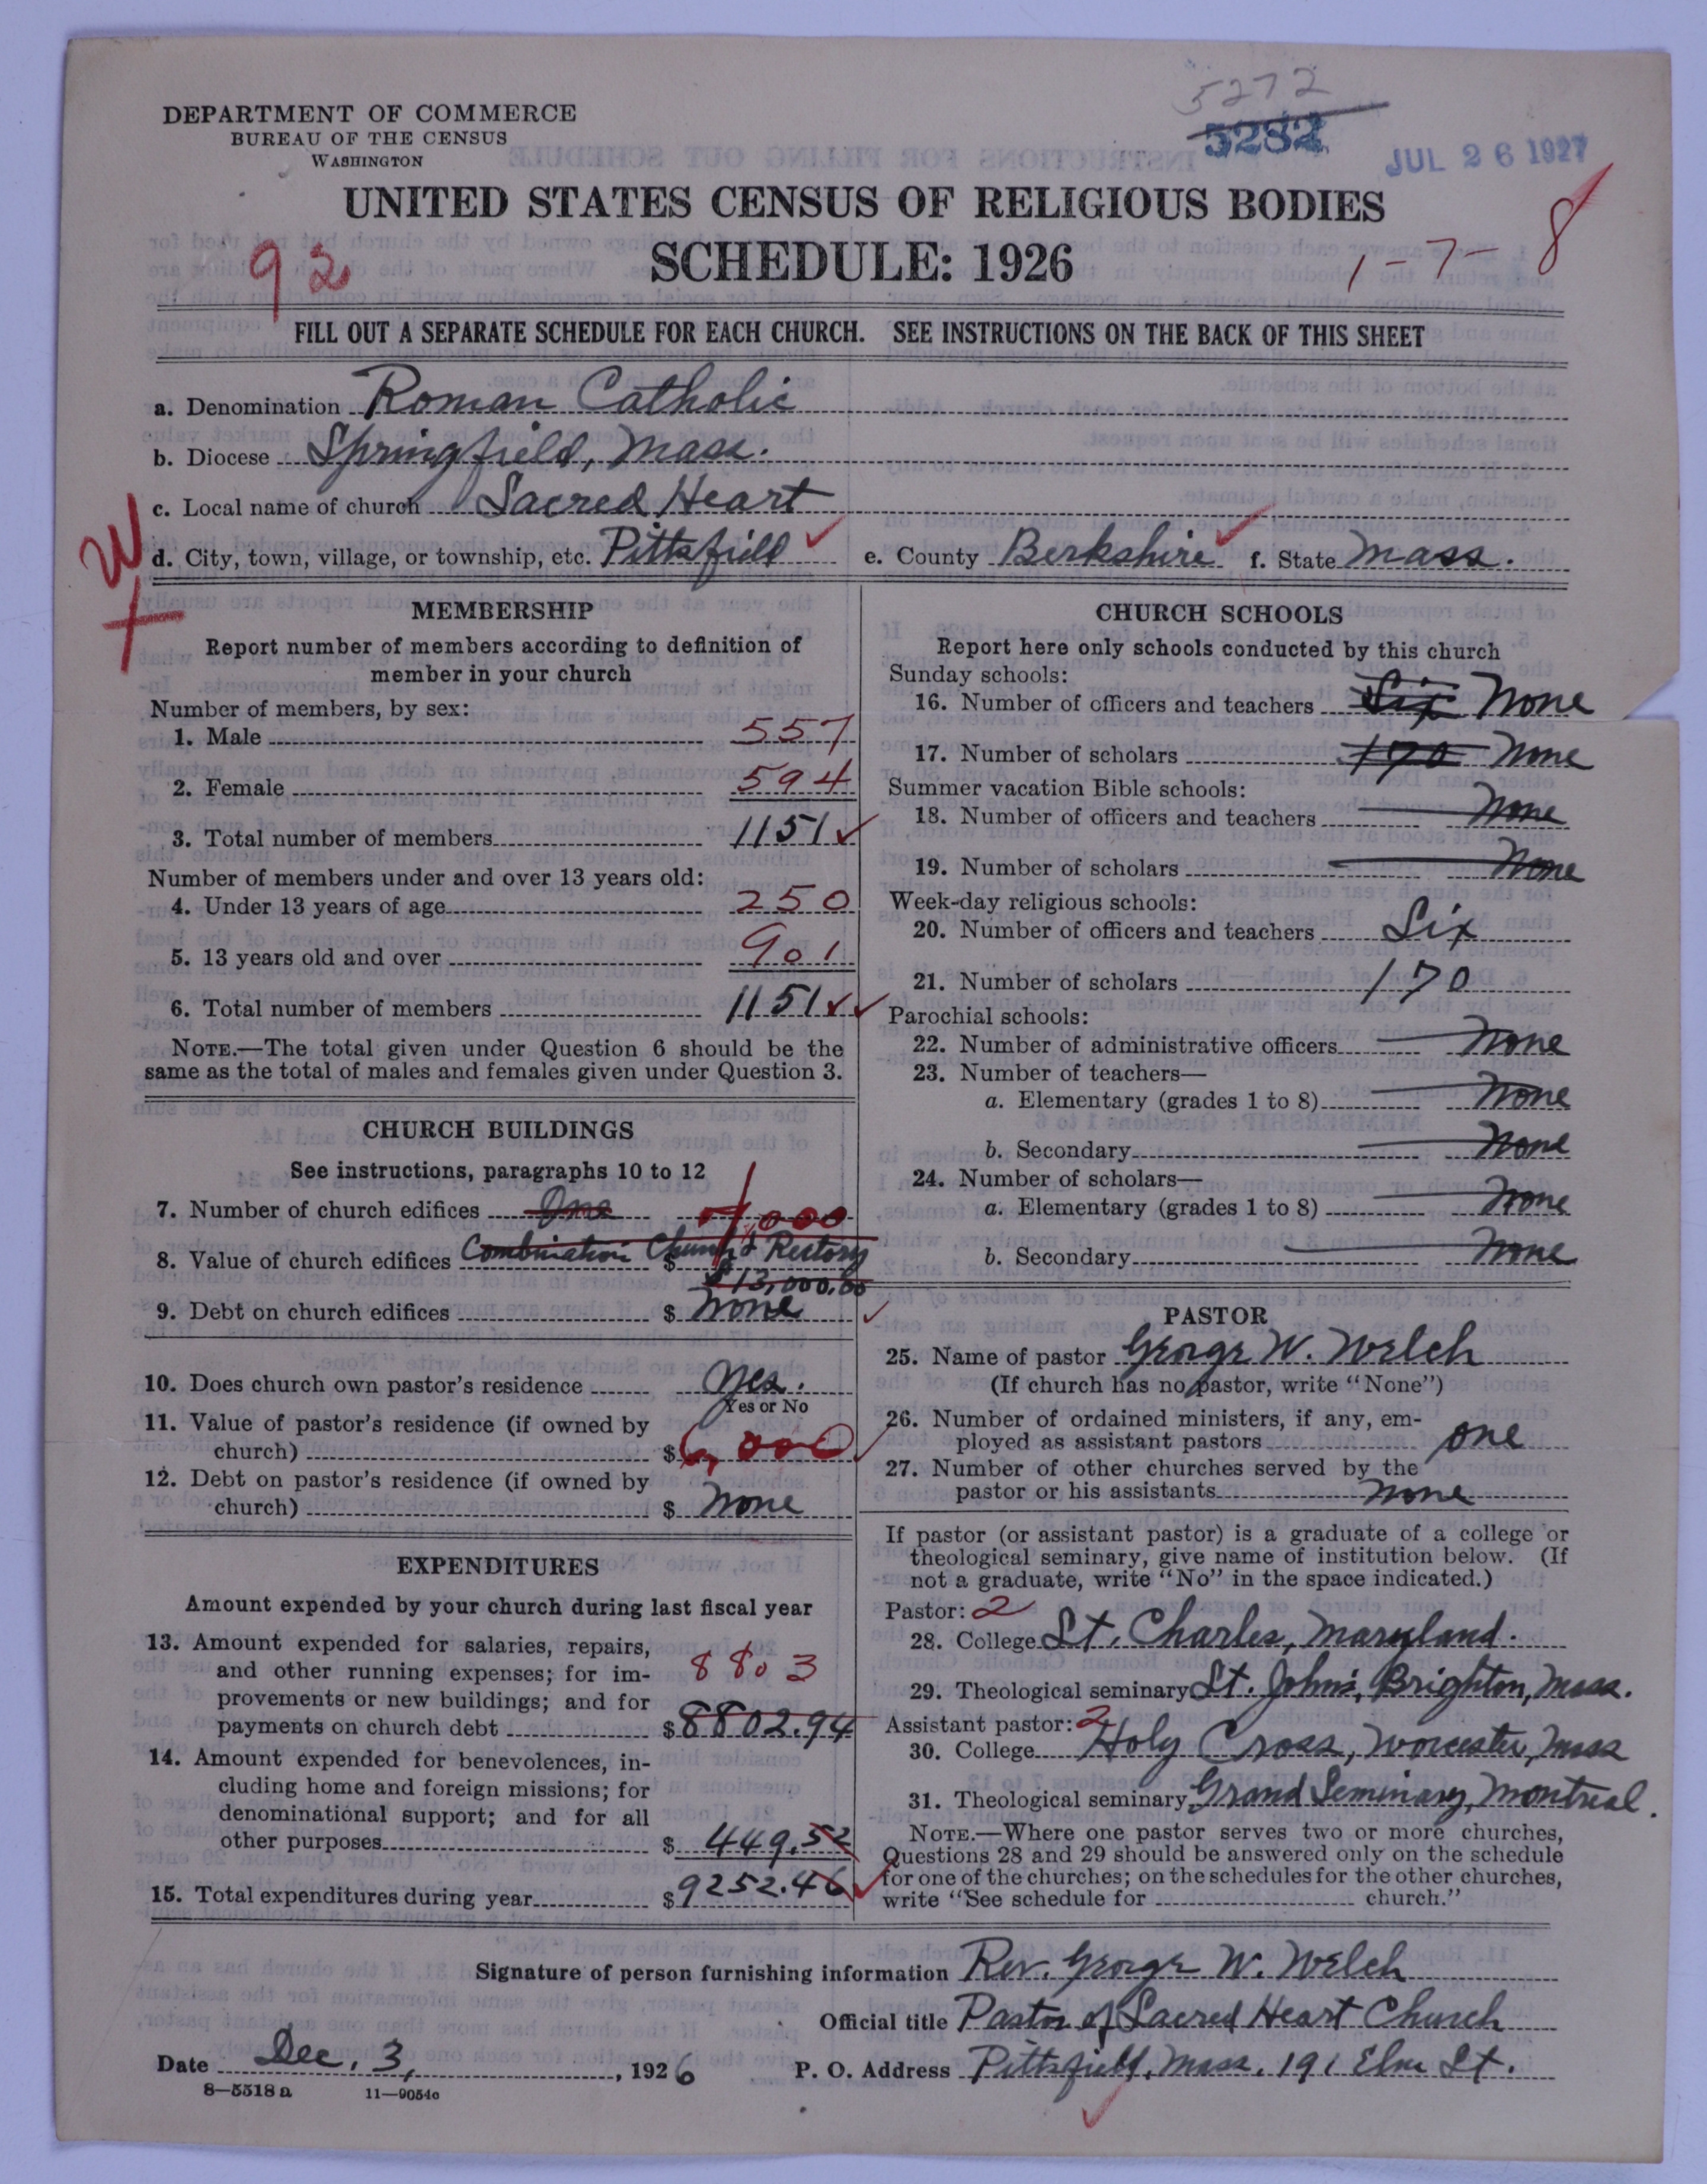 5272
5282
JUL 26 1927
DEPARTMENT OF COMMERCE
BUREAU OF THE CENSUS
WASHINGTON
UNITED STATES CENSUS OF RELIGIOUS BODIES
SCHEDULE: 1926
92
1-7-8
FILL OUT A SEPARATE SCHEDULE FOR EACH CHURCH. SEE INSTRUCTIONS ON THE BACK OF THIS SHEET
a. Denomination Roman Catholic
b. Diocese Springfield, Mass.
c. Local name of church Sacred Heart
W
d. City, town, village, or township, etc. Pittsfield e. County Berkshire f. State Mass.
MEMBERSHIP
Report number of members according to definition of
member in your church
Number of members, by sex:
1. Male 557
2. Female 594
3. Total number of members 1151
Number of members under and over 13 years old:
4. Under 13 years of age 250
5. 13 years old and over 901
6. Total number of members 1151
NOTE.—The total given under Question 6 should be the
same as the total of males and females given under Question 3.
CHURCH BUILDINGS
See instructions, paragraphs 10 to 12
7. Number of church edifices One
,000
8. Value of church edifices Combination Church & Rectory
$ $13,000.00
9. Debt on church edifices $ None
10. Does church own pastor's residence Yes.
Yes or No
11. Value of pastor's residence (if owned by
church) $ 6,000
12. Debt on pastor's residence (if owned by
church) $ None
EXPENDITURES
Amount expended by your church during last fiscal year
13. Amount expended for salaries, repairs,
and other running expenses; for im- 8803
provements or new buildings; and for
payments on church debt $ 8802.94
14. Amount expended for benevolences, in-
cluding home and foreign missions; for
denominational support; and for all
other purposes $ 449.52
15. Total expenditures during year $ 9252.46
CHURCH SCHOOLS
Report here only schools conducted by this church
Sunday schools:
16. Number of officers and teachers Six None
17. Number of scholars 170 None
Summer vacation Bible schools:
18. Number of officers and teachers None
19. Number of scholars None
Week-day religious schools:
20. Number of officers and teachers Six
21. Number of scholars 170
Parochial schools:
22. Number of administrative officers None
23. Number of teachers—
a. Elementary (grades 1 to 8) None
b. Secondary None
24. Number of scholars—
a. Elementary (grades 1 to 8) None
b. Secondary None
PASTOR
25. Name of pastor George W. Welch
(If church has no pastor, write "None")
26. Number of ordained ministers, if any, em-
ployed as assistant pastors one
27. Number of other churches served by the
pastor or his assistants None
If pastor (or assistant pastor) is a graduate of a college or
theological seminary, give name of institution below. (If
not a graduate, write "No" in the space indicated.)
Pastor: 2
28. College St. Charles, Maryland.
29. Theological seminary St. John's, Brighton, Mass.
Assistant pastor: 2
30. College Holy Cross, Worcester, Mass
31. Theological seminary Grand Seminary, Montreal.
NOTE.—Where one pastor serves two or more churches,
Questions 28 and 29 should be answered only on the schedule
for one of the churches; on the schedules for the other churches,
write "See schedule for church."
Signature of person furnishing information Rev. George W. Welch
Official title Pastor of Sacred Heart Church
Date Dec. 3, , 1926 P. O. Address Pittsfield, Mass. 191 Elm St.
8—5518 a 11—9054c